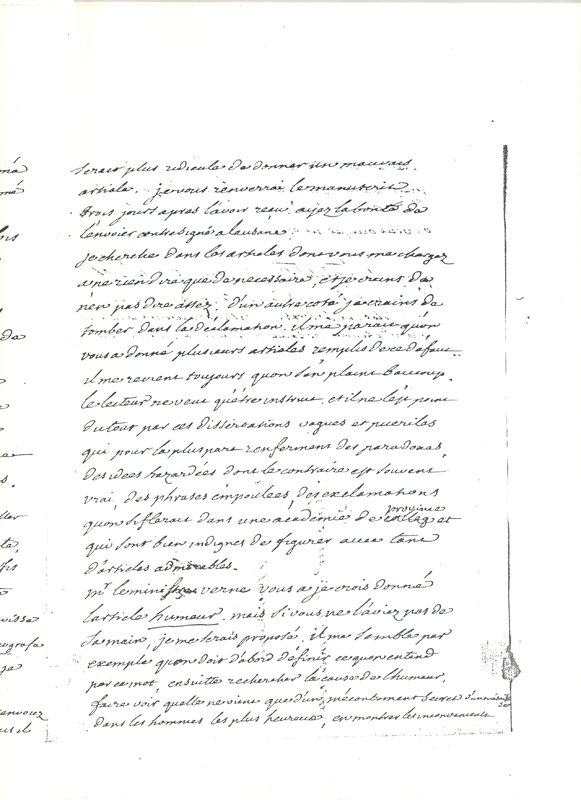 serais plus ridicule de donner un mauvais
article. je vous renverrai le manuscrit
trois jours apres lavoir reçu. ayez la bonté de
lenvoier contresigné a lausane
je cherche dans les articles dont vous me chargez
a ne rien dire que de necessaire, et je crains de
nen pas dire assez, d'un autre coté je crains de
tomber dans la déclamation. il me parait qu'on
vous a donné plusieurs articles remplis de ce défaut
il me revient toujours quon s'en plaint beaucoup.
le lecteur ne veut quêtre instruit, et il ne l'est point
du tout par ces dissertations vagues et pueriles
qui pour la pluspart renferment des paradoxes,
des idées hazardées dont le contraire est souvent
vrai, des phrases empoulées, des exclamations
quon sifflerait dans une académie de province
qui sont bien indignes de figurer avec tant
d'articles admirables.
mr le ministre verne vous a je crois donné
larticle humeur. mais si vous ne l'aviez pas de
sa main, je me serais proposé. il me semble par
exemple quon doit d'abord définir ce quon entend
par ce mot, ensuitte rechercher la cause de lhumeur,
faire voir quelle ne vient que d'un mécontement secret
dans les hommes les plus heureux, en montrer les inconvenients